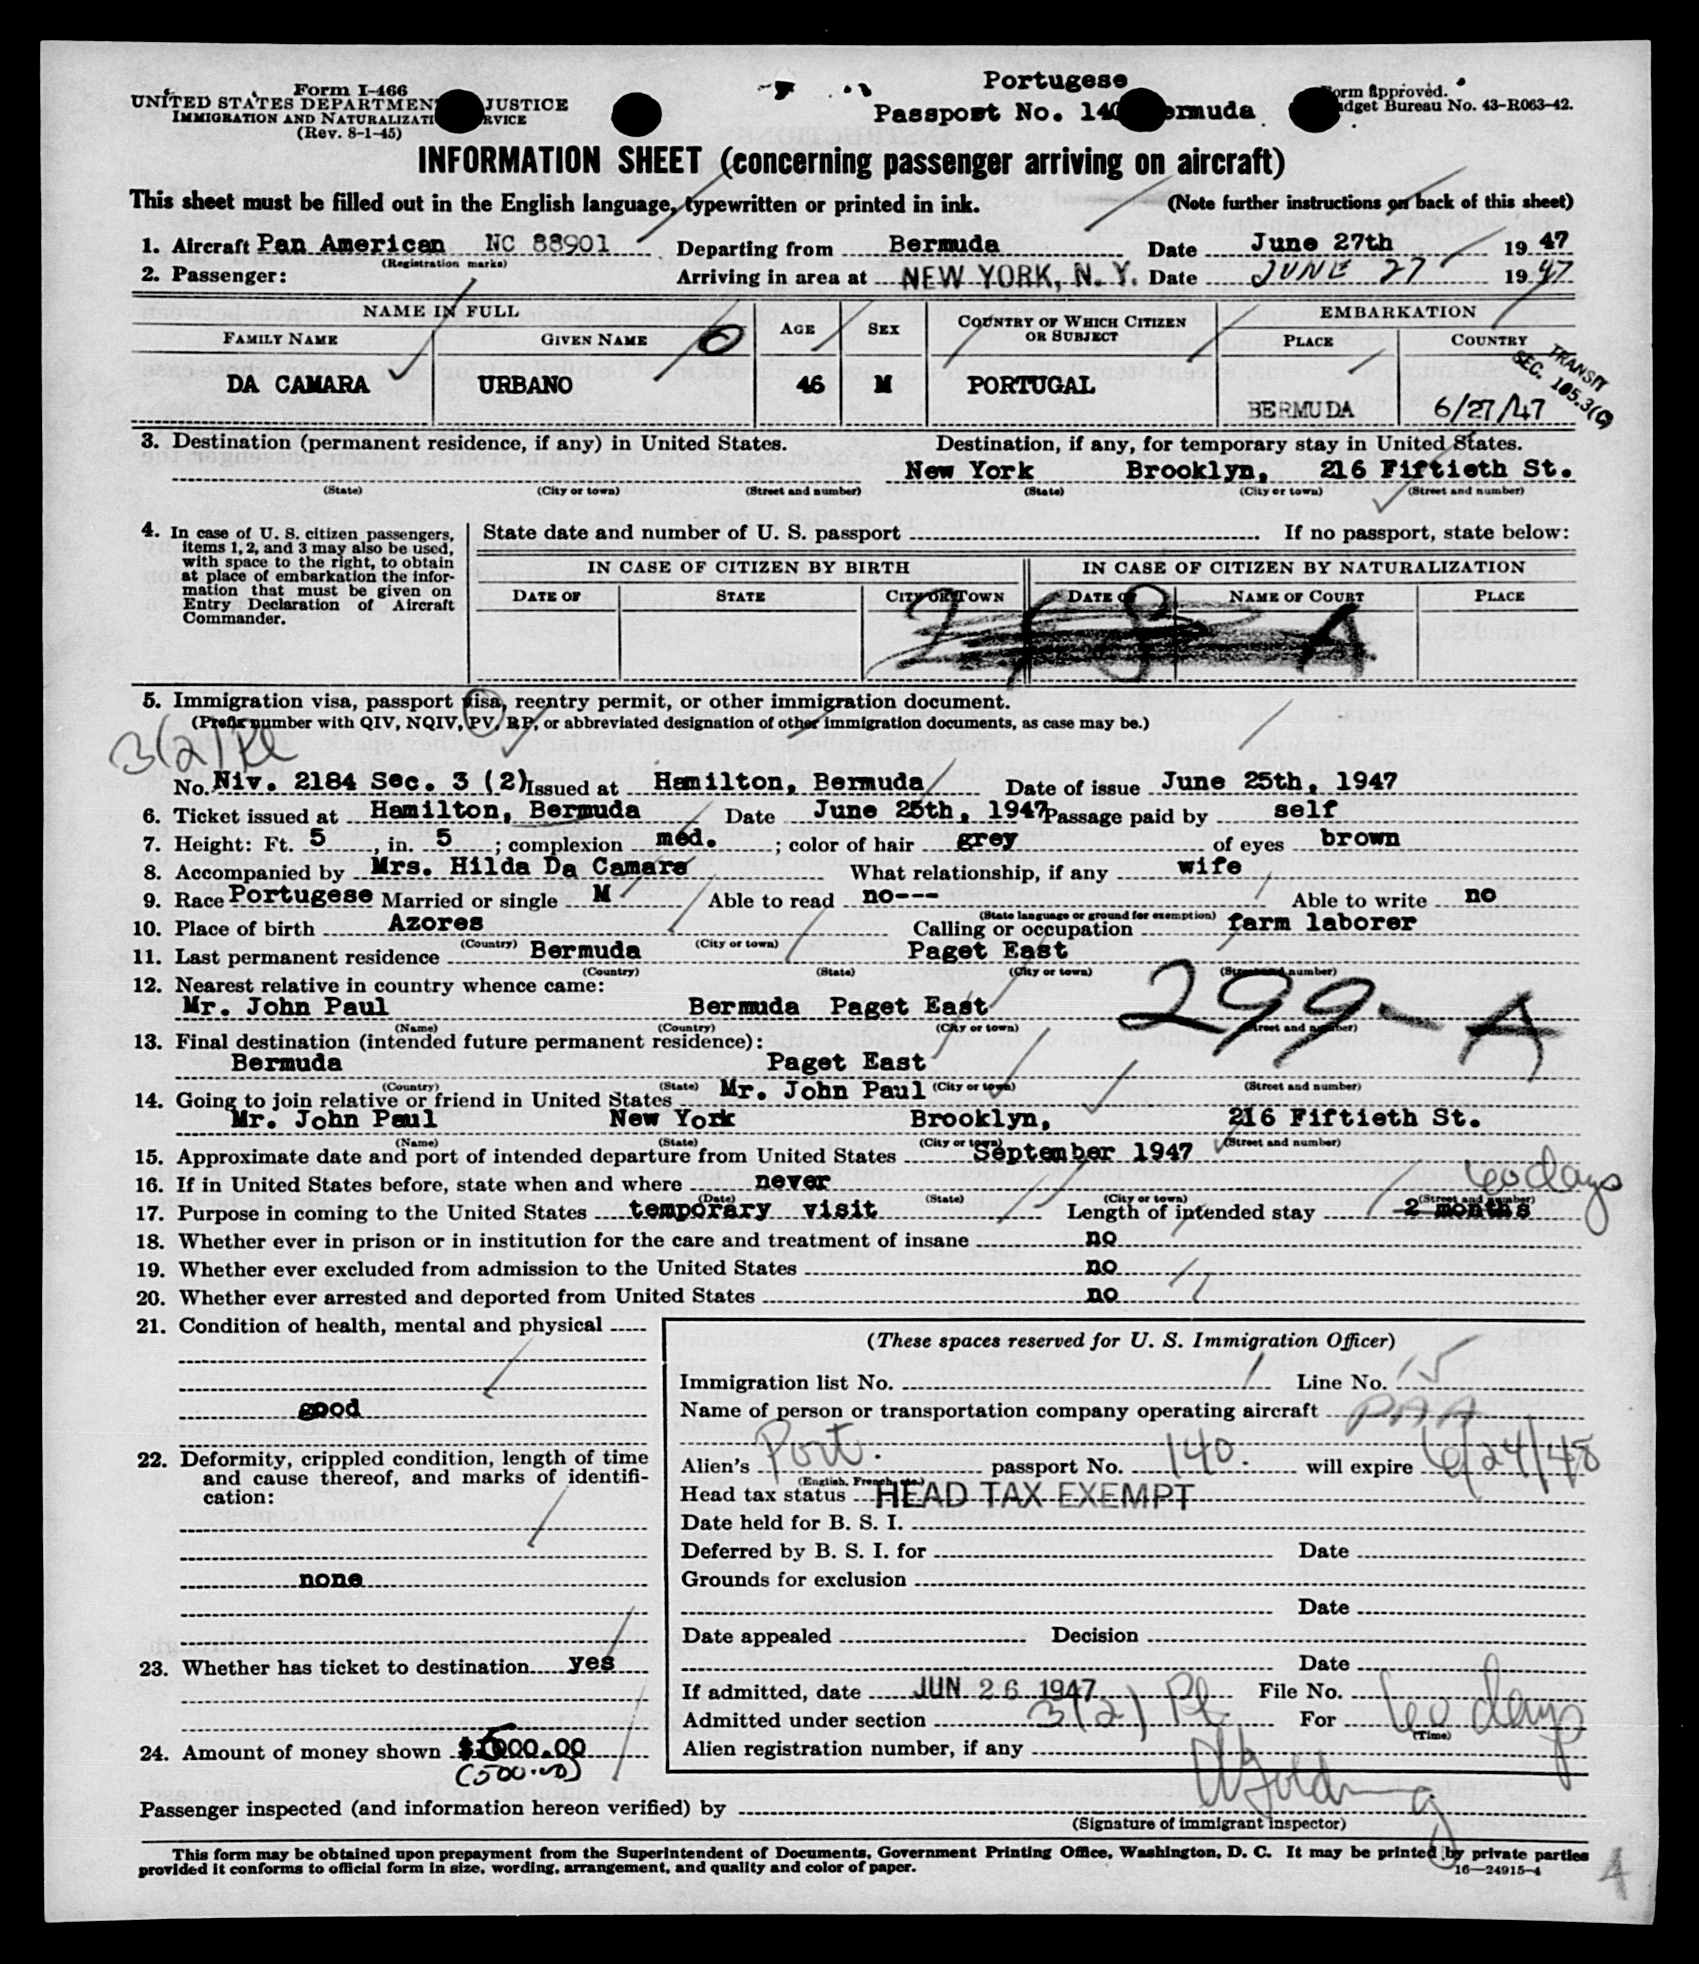 Form I-466
UNITED STATES DEPARTMENT JUSTICE
IMMIGRATION AND NATURALIZATI RVICE
(Rev. 8-1-45)
Portugese
Passport No. 140 ermuda
orm Approved.
dget Bureau No. 43-R063-42.
INFORMATION SHEET (concerning passenger arriving on aircraft)
This sheet must be filled out in the English language, typewritten or printed in ink. (Note further instructions on back of this sheet)
1. Aircraft Pan American NC 88901 Departing from Bermuda Date June 27th 1947
(Registration marks)
2. Passenger: Arriving in area at NEW YORK, N. Y. Date JUNE 27 1947
NAME IN FULL AGE SEX COUNTRY OF WHICH CITIZEN OR SUBJECT EMBARKATION
FAMILY NAME GIVEN NAME PLACE COUNTRY
TRANSIT
SEC. 105.3(C)
DA CAMARA URBANO 46 M PORTUGAL
BERMUDA 6/27/47
3. Destination (permanent residence, if any) in United States. Destination, if any, for temporary stay in United States.
New York Brooklyn, 216 Fiftieth St.
(State) (City or town) (Street and number) (State) (City or town) (Street and number)
4. In case of U. S. citizen passengers, items 1, 2, and 3 may also be used, with space to the right, to obtain at place of embarkation the information that must be given on Entry Declaration of Aircraft Commander.
State date and number of U. S. passport If no passport, state below:
IN CASE OF CITIZEN BY BIRTH IN CASE OF CITIZEN BY NATURALIZATION
DATE OF STATE CITY OR TOWN DATE OF NAME OF COURT PLACE
5. Immigration visa, passport visa, reentry permit, or other immigration document.
(Prefix number with QIV, NQIV, PV, RP, or abbreviated designation of other immigration documents, as case may be.)
3(2) Pl
No. Niv. 2184 Sec. 3 (2) Issued at Hamilton, Bermuda Date of issue June 25th, 1947
6. Ticket issued at Hamilton, Bermuda Date June 25th, 1947 Passage paid by self
7. Height: Ft. 5, in. 5; complexion med.; color of hair grey of eyes brown
8. Accompanied by Mrs. Hilda Da Camara What relationship, if any wife
9. Race Portugese Married or single M Able to read no--- Able to write no
(State language or ground for exemption)
10. Place of birth Azores Calling or occupation farm laborer
(Country) (City or town)
11. Last permanent residence Bermuda Paget East
(Country) (State) (City or town) (Street and number)
12. Nearest relative in country whence came:
Mr. John Paul Bermuda Paget East
299-A
(Name) (Country) (City or town) (Street and number)
13. Final destination (intended future permanent residence):
Bermuda Paget East
(Country) (State) (City or town) (Street and number)
14. Going to join relative or friend in United States Mr. John Paul
Mr. John Paul New York Brooklyn, 216 Fiftieth St.
(Name) (State) (City or town) (Street and number)
15. Approximate date and port of intended departure from United States September 1947
60 days
16. If in United States before, state when and where never
(Date) (State) (City or town) (Street and number)
17. Purpose in coming to the United States temporary visit Length of intended stay 2 months
18. Whether ever in prison or in institution for the care and treatment of insane no
19. Whether ever excluded from admission to the United States no
20. Whether ever arrested and deported from United States no
21. Condition of health, mental and physical
good
22. Deformity, crippled condition, length of time and cause thereof, and marks of identification:
none
23. Whether has ticket to destination yes
24. Amount of money shown $500.00
(500.00)
(These spaces reserved for U. S. Immigration Officer)
Immigration list No. 1 Line No. 15
Name of person or transportation company operating aircraft PAA
Alien's Port. passport No. 140. will expire 6/24/48
(English, French, etc.)
Head tax status HEAD TAX EXEMPT
Date held for B. S. I.
Deferred by B. S. I. for Date
Grounds for exclusion
Date
Date appealed Decision
Date
If admitted, date JUN 26 1947 File No.
Admitted under section 3(2) Pl For 60 days
(Time)
Alien registration number, if any
Passenger inspected (and information hereon verified) by
(Signature of immigrant inspector)
This form may be obtained upon prepayment from the Superintendent of Documents, Government Printing Office, Washington, D. C. It may be printed by private parties
provided it conforms to official form in size, wording, arrangement, and quality and color of paper. 16—24915-4
4